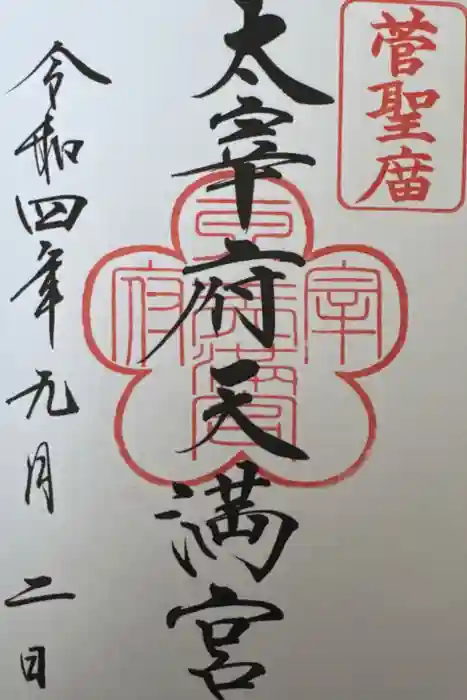 菅聖廟
太宰府天満宮
令和四年九月二日